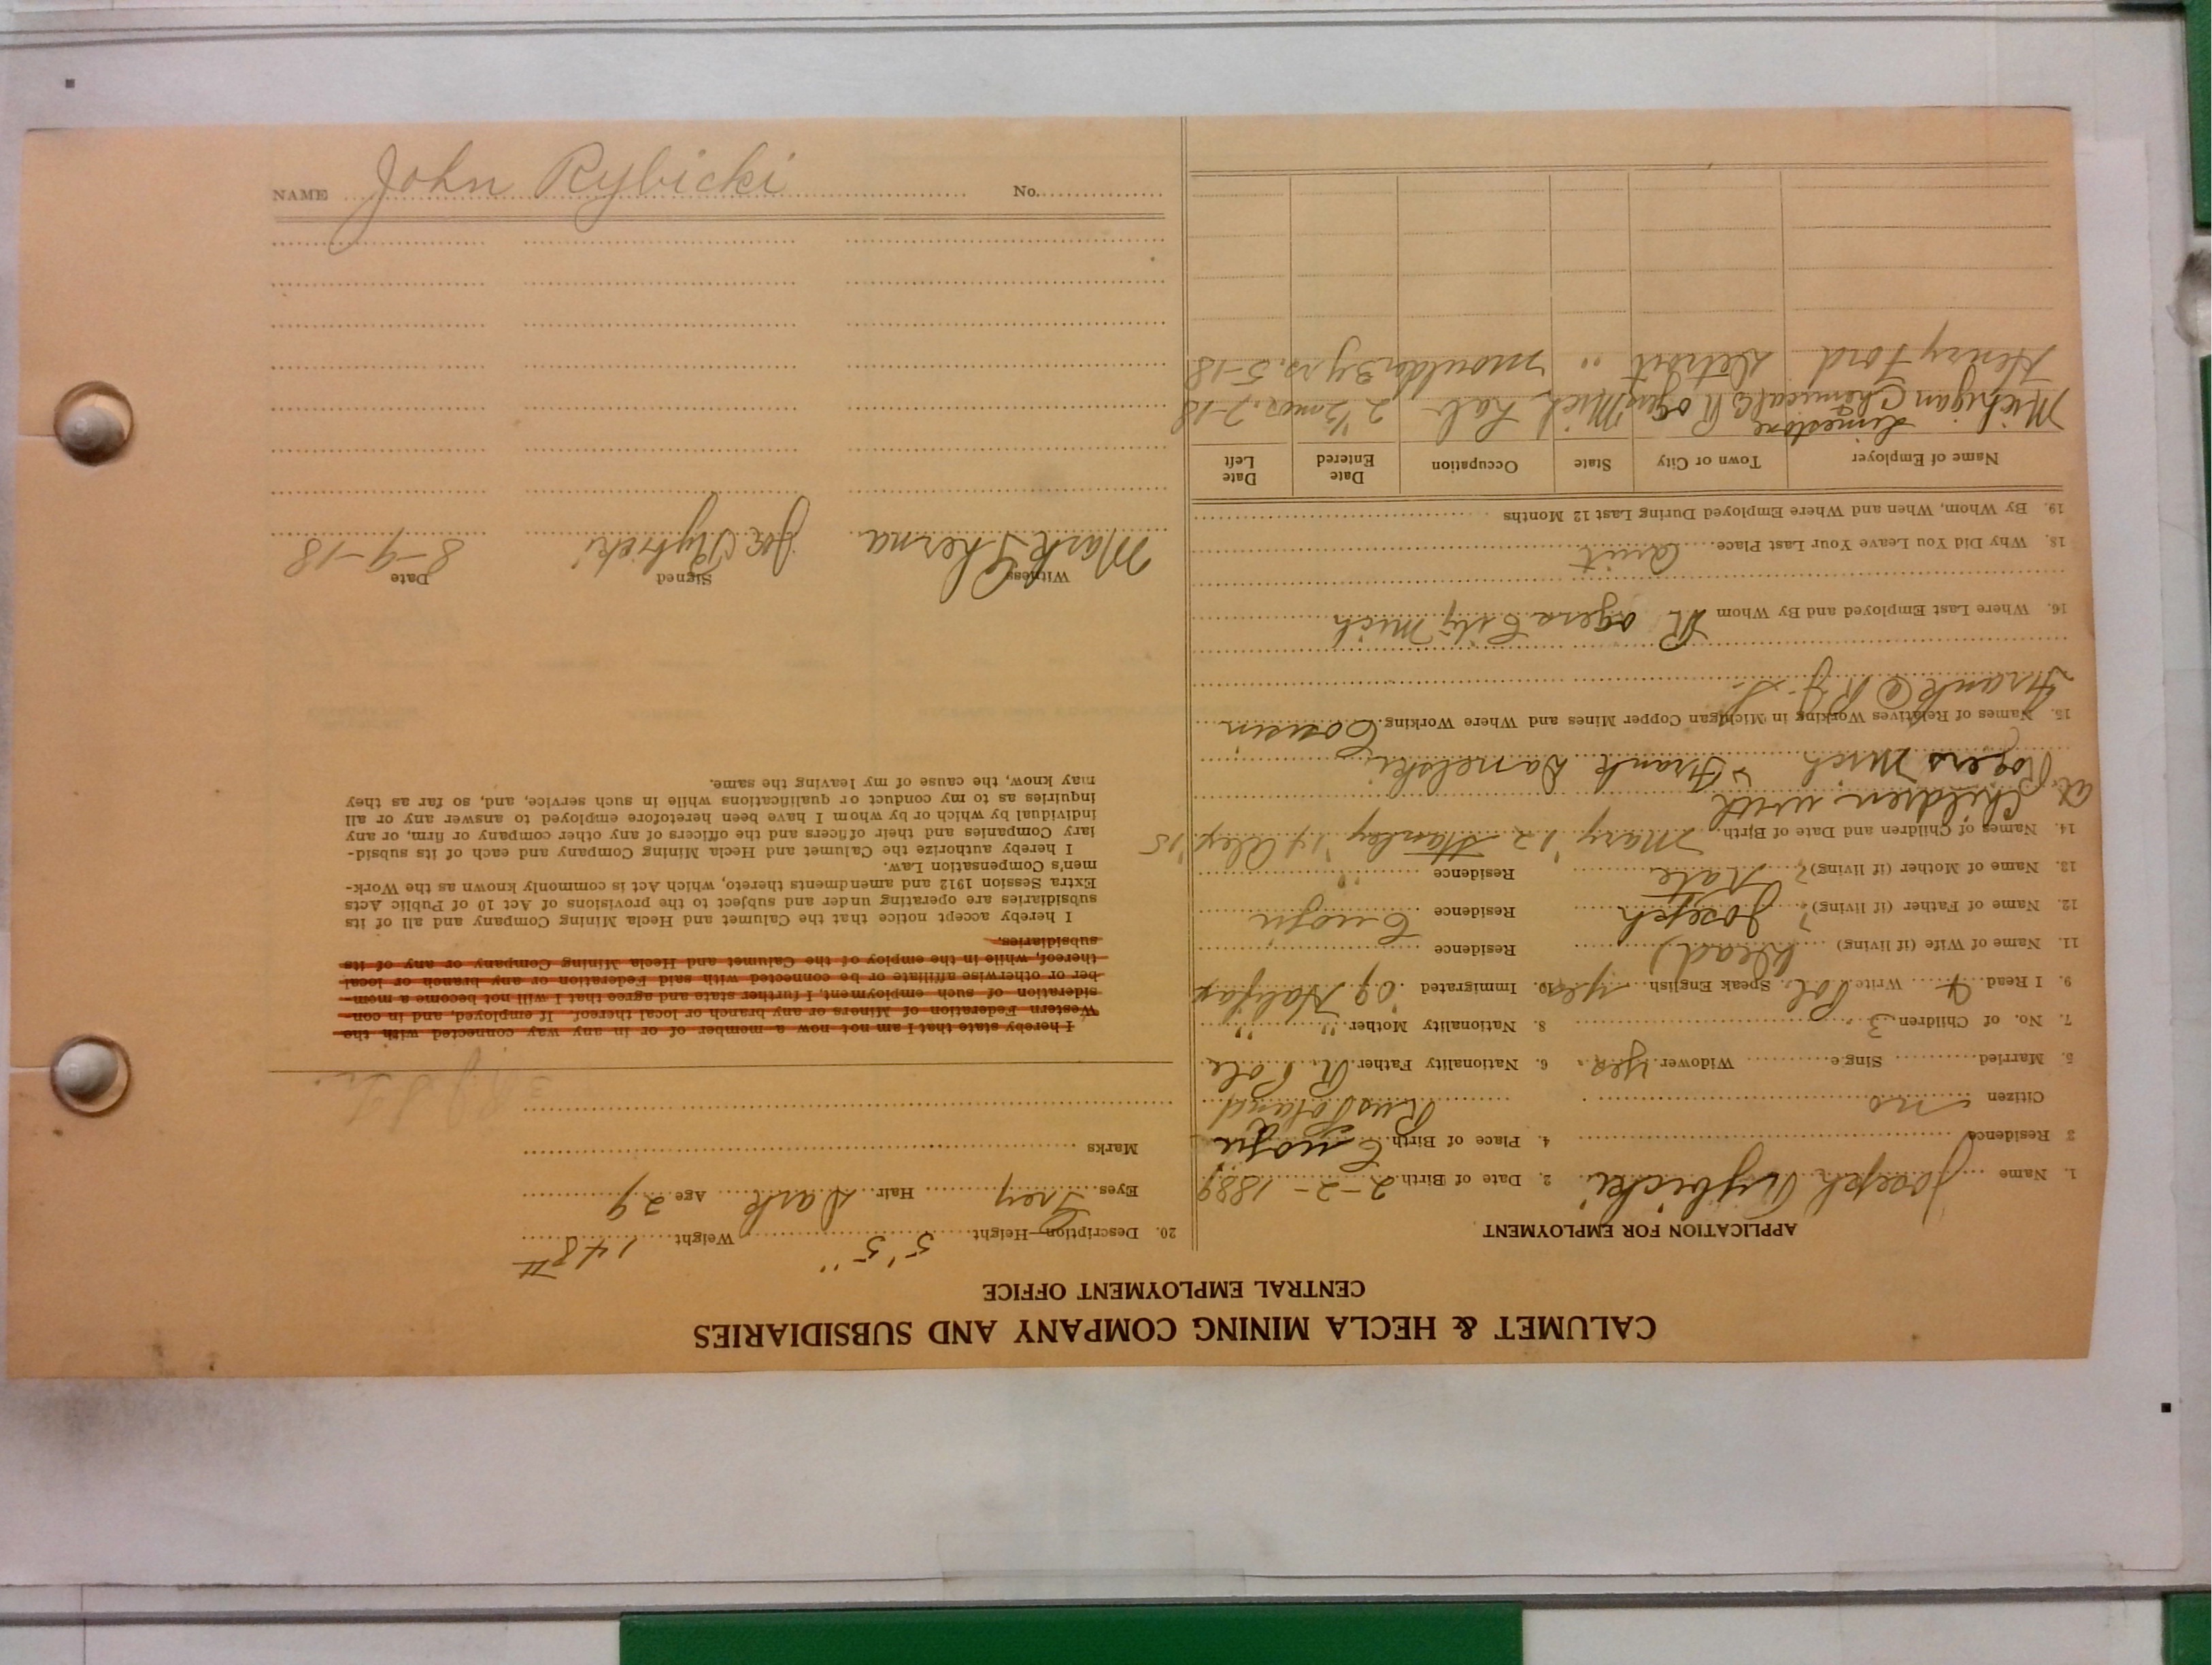 CALUMET & HECLA MINING COMPANY AND SUBSIDIARIES
CENTRAL EMPLOYMENT OFFICE
APPLICATION FOR EMPLOYMENT
1. Name Joseph Rybicki 2. Date of Birth 2-2-1889
3 Residence 4. Place of Birth
Citizen no Rus Poland
5. Married Sing e Widower yes. 6. Nationality Father R. Pole
7. No. of Children 3 8. Nationality Mother " "
9. I Read Write Pol. Speak English yes 10. Immigrated '09 Halifax
11. Name of Wife (if living) (dead) Residence
12. Name of Father (if living)? Joseph Residence
13. Name of Mother (if living)? Kate Residence "
14. Names of Children and Date of Birth. Mary '12 Stanley '14 Alex '15
Children with
at Rogers Mich Frank Danelski
15. Names of Relatives Working in Michigan Copper Mines and Where Working. Cousin
Frank @ R. J. S.
16. Where Last Employed and By Whom Rogers City Mich
18. Why Did You Leave Your Last Place Quit
19. By Whom, When and Where Employed During Last 12 Months
Name of Employer Town or City State Occupation Date Entered Date Left
Limestone
Michigan Chemical Co Rogers Mich Lab 2 1/2 mos. 7-18
Henry Ford Detroit " moulder 3 yrs. 5-18
20. Description—Height 5' 5" Weight 148 #
Eyes Grey Hair Dark Age 29
Marks
I hereby state that I am not now a member of or in any way connected with the
Western Federation of Miners or any branch or local thereof. If employed, and in con-
sideration of such employment, I further state and agree that I will not become a mem-
ber or otherwise affiliate or be connected with said Federation or any branch or local
thereof, while in the employ of the Calumet and Hecla Mining Company or any of its
subsidiaries.
I hereby accept notice that the Calumet and Hecla Mining Company and all of its
subsidiaries are operating under and subject to the provisions of Act 10 of Public Acts
Extra Session 1912 and amendments thereto, which Act is commonly known as the Work-
men's Compensation Law.
I hereby authorize the Calumet and Hecla Mining Company and each of its subsid-
iary Companies and their officers and the officers of any other company or firm, or any
individual by which or by whom I have been heretofore employed to answer any or all
inquiries as to my conduct or qualifications while in such service, and, so far as they
may know, the cause of my leaving the same.
Witness Signed Date
Mark Joe Rybicki 8-9-18
NAME John Rybicki No.